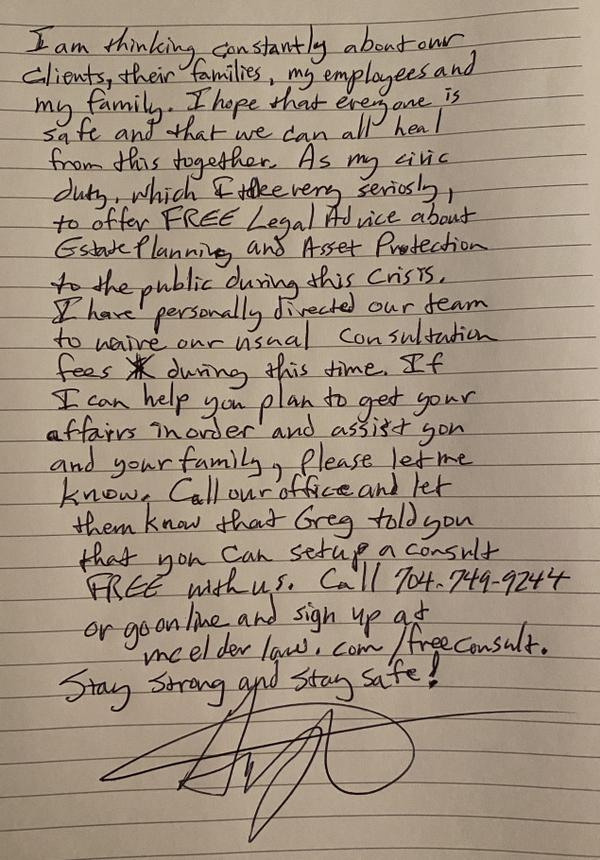 I am thinking constantly about our
Clients, their families, my employees and
my family. I hope that everyone is
safe and that we can all heal
from this together. As my civic
duty, which I very seriosly,
to offer FREE Legal Advice about
Estate Planning and Asset Protection
to the public during this Crisis.
I have personally directed our team
to waive our usual Consultation
fees during this time. If
I can help you plan to get your
affairs in order and assist you
and your family, please let me
know. Call our office and let
them know that Greg told you
that you can setup a consult
FREE with us. Call 704-749-9244
or go online and sign up at
mcelderlaw.com/freeconsult.
Stay Strong and Stay Safe!